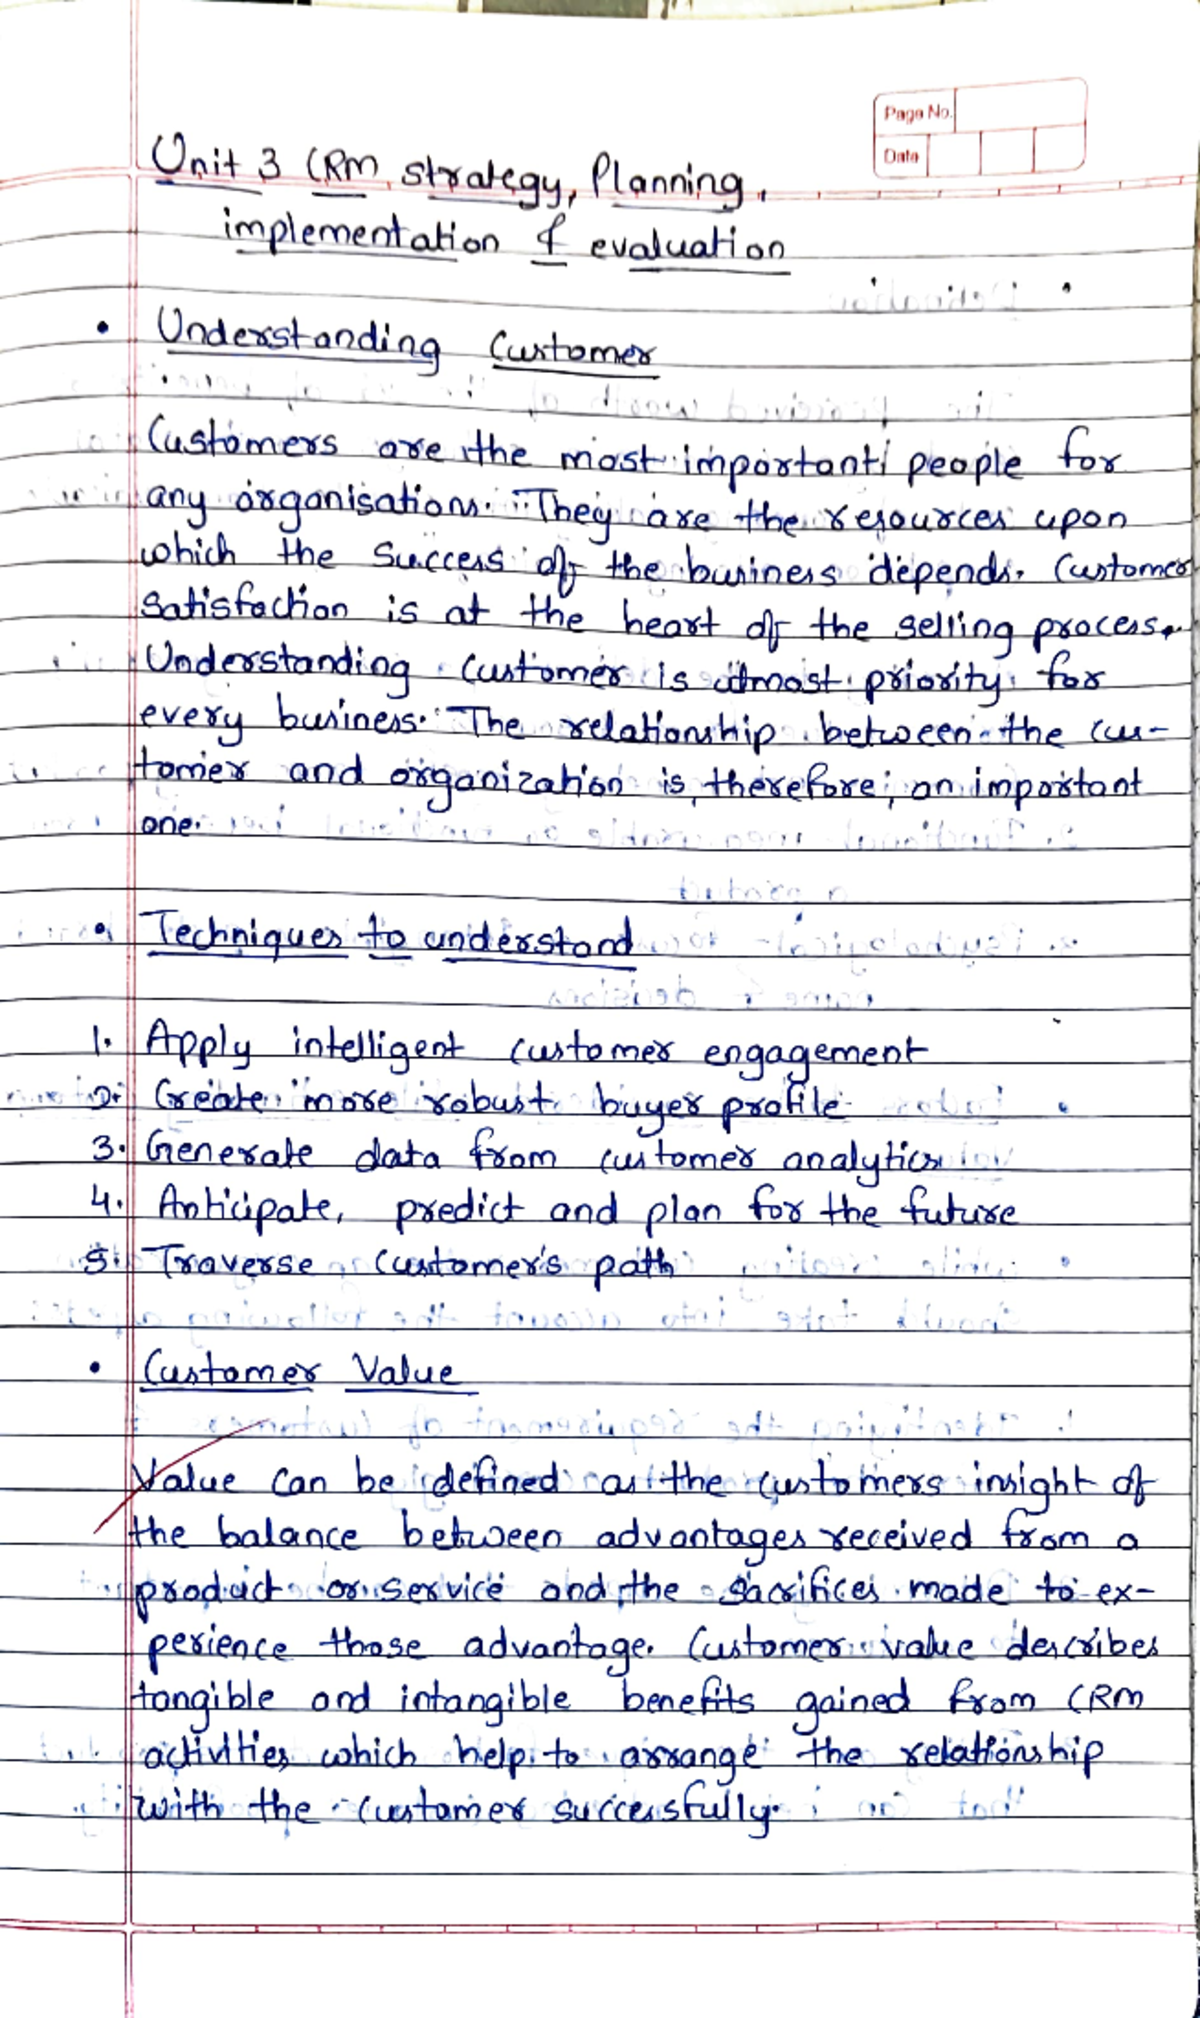 Page No.
Date
Unit 3 CRM strategy, Planning,
implementation & evaluation
• Understanding Customer
Customers are the most important people for
any organisations. They are the resources upon
which the success of the business depends. Customer
satisfaction is at the heart of the selling process.
Understanding customer is utmost priority for
every business. The relationship between the cus-
tomer and organization is, therefore, an important
one.
• Techniques to understand
1. Apply intelligent customer engagement
2. Create more robust buyer profile
3. Generate data from customer analytics
4. Anticipate, predict and plan for the future
5. Traverse customer's path
• Customer Value
Value can be defined as the customers insight of
the balance between advantages received from a
product or service and the sacrifices made to ex-
perience those advantage. Customer value describes
tangible and intangible benefits gained from CRM
activities, which help to arrange the relationship
with the customer successfully.